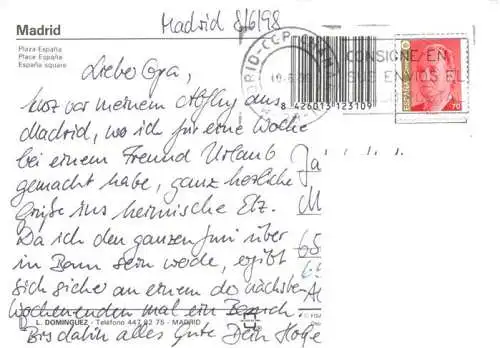 Madrid 8/6/98
Madrid
Plaza España
Place España
España square
Lieber Opa,
kurz vor meinem Abflug aus
Madrid, wo ich für eine Woche
bei einem Freund Urlaub
gemacht habe, ganz herzliche
Grüße ins heimische Etz.
Da ich den ganzen Juni über
in Bonn sein werde, ergibt
sich sicher an einem der nächsten
Wochenenden mal ein Besuch.
Bis dahin alles Gute Dein
8 426013 123109
CONSIGNE EN
SUS ENVIOS EL
ESPAÑA
70
L. DOMINGUEZ - Teléfono 447 92 75 - MADRID